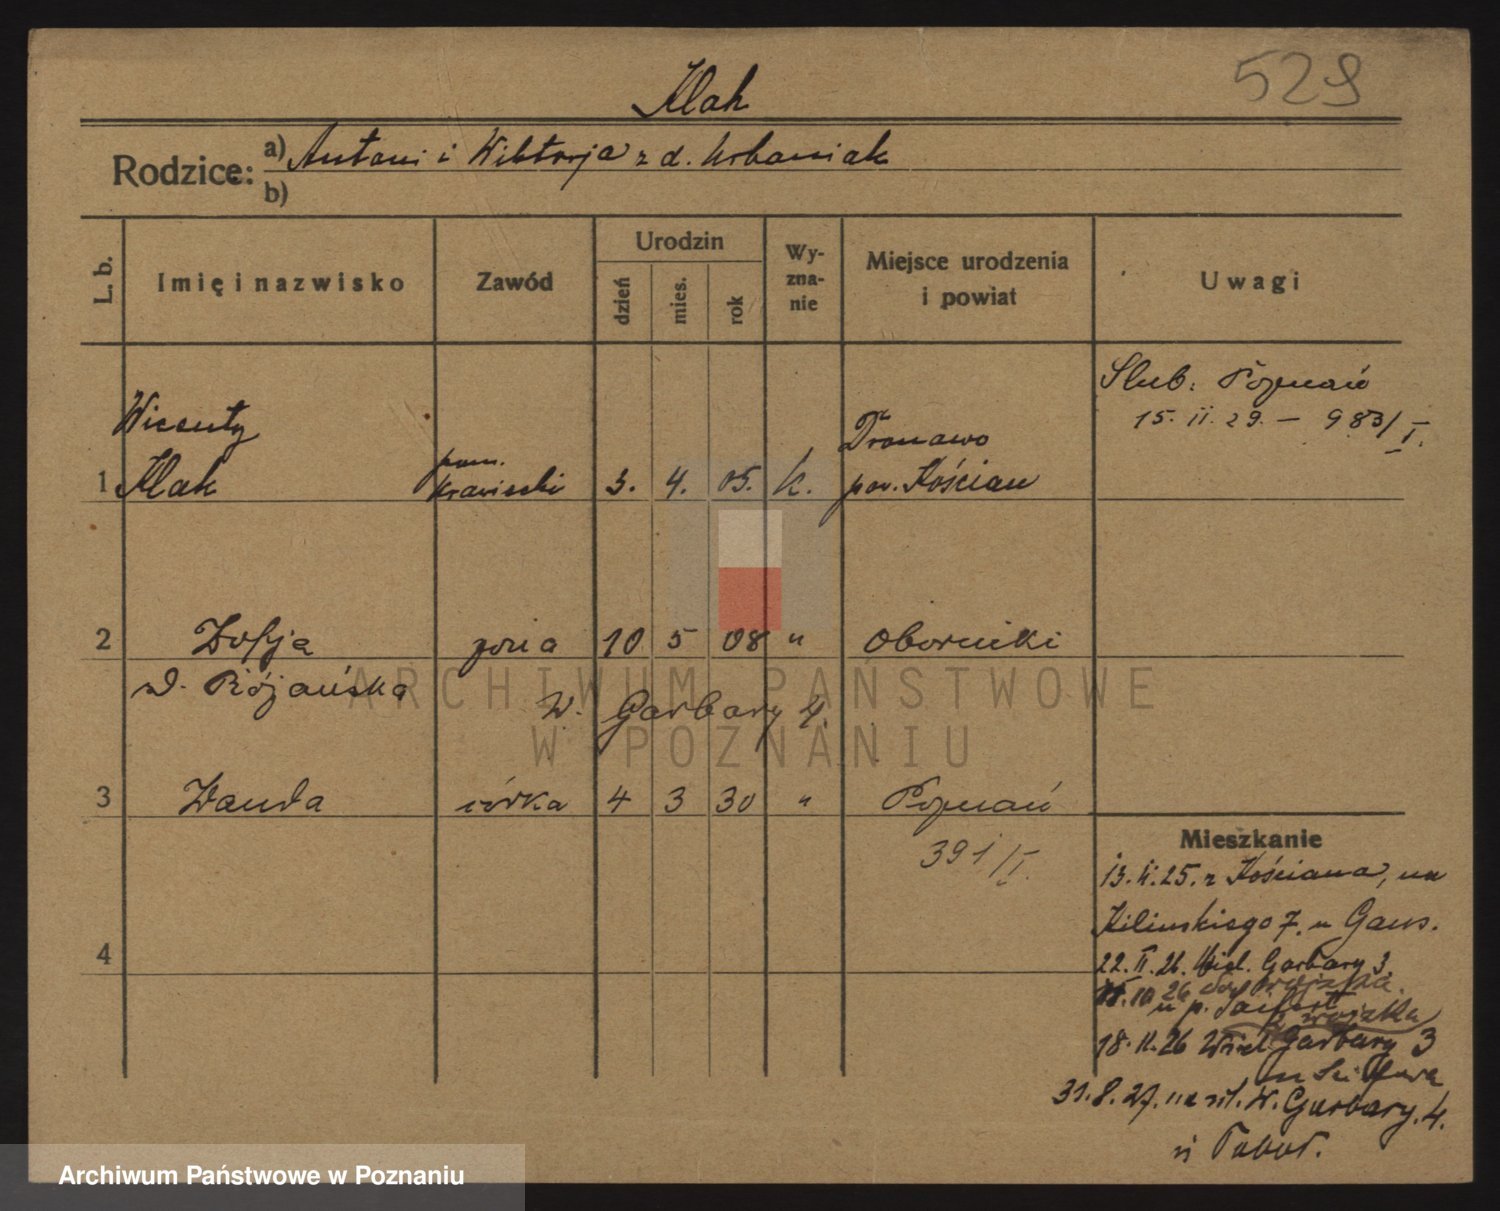 529
Klak
Rodzice: a) Antoni i Wiktorja z d. Urbaniak
b)
L. b.
Imię i nazwisko
Zawód
Urodzin
dzień
mies.
rok
Wy-
zna-
nie
Miejsce urodzenia
i powiat
Uwagi
Ślub: Poznań
15. II. 29. — 983/I.
Wicenty
1 Klak pom. krawiecki 3. 4. 05. k. pow. Kościan
2 Zofja żona 10 5 08 " Oborniki
d. Różańska
W. Garbary 4.
3 Wanda córka 4 3 30 " Poznań
391/I.
4
Mieszkanie
13. 11. 25. z Kościana, na
Kilińskiego 7. u
22. II. 26. Wiel. Garbary 3
10 26 do wojska.
u p.
z wojska
18. 11. 26 Wiel Garbary 3
u
31. 8. 27. na ul. W. Garbary. 4.
ARCHIWUM PAŃSTWOWE
W POZNANIU
Archiwum Państwowe w Poznaniu